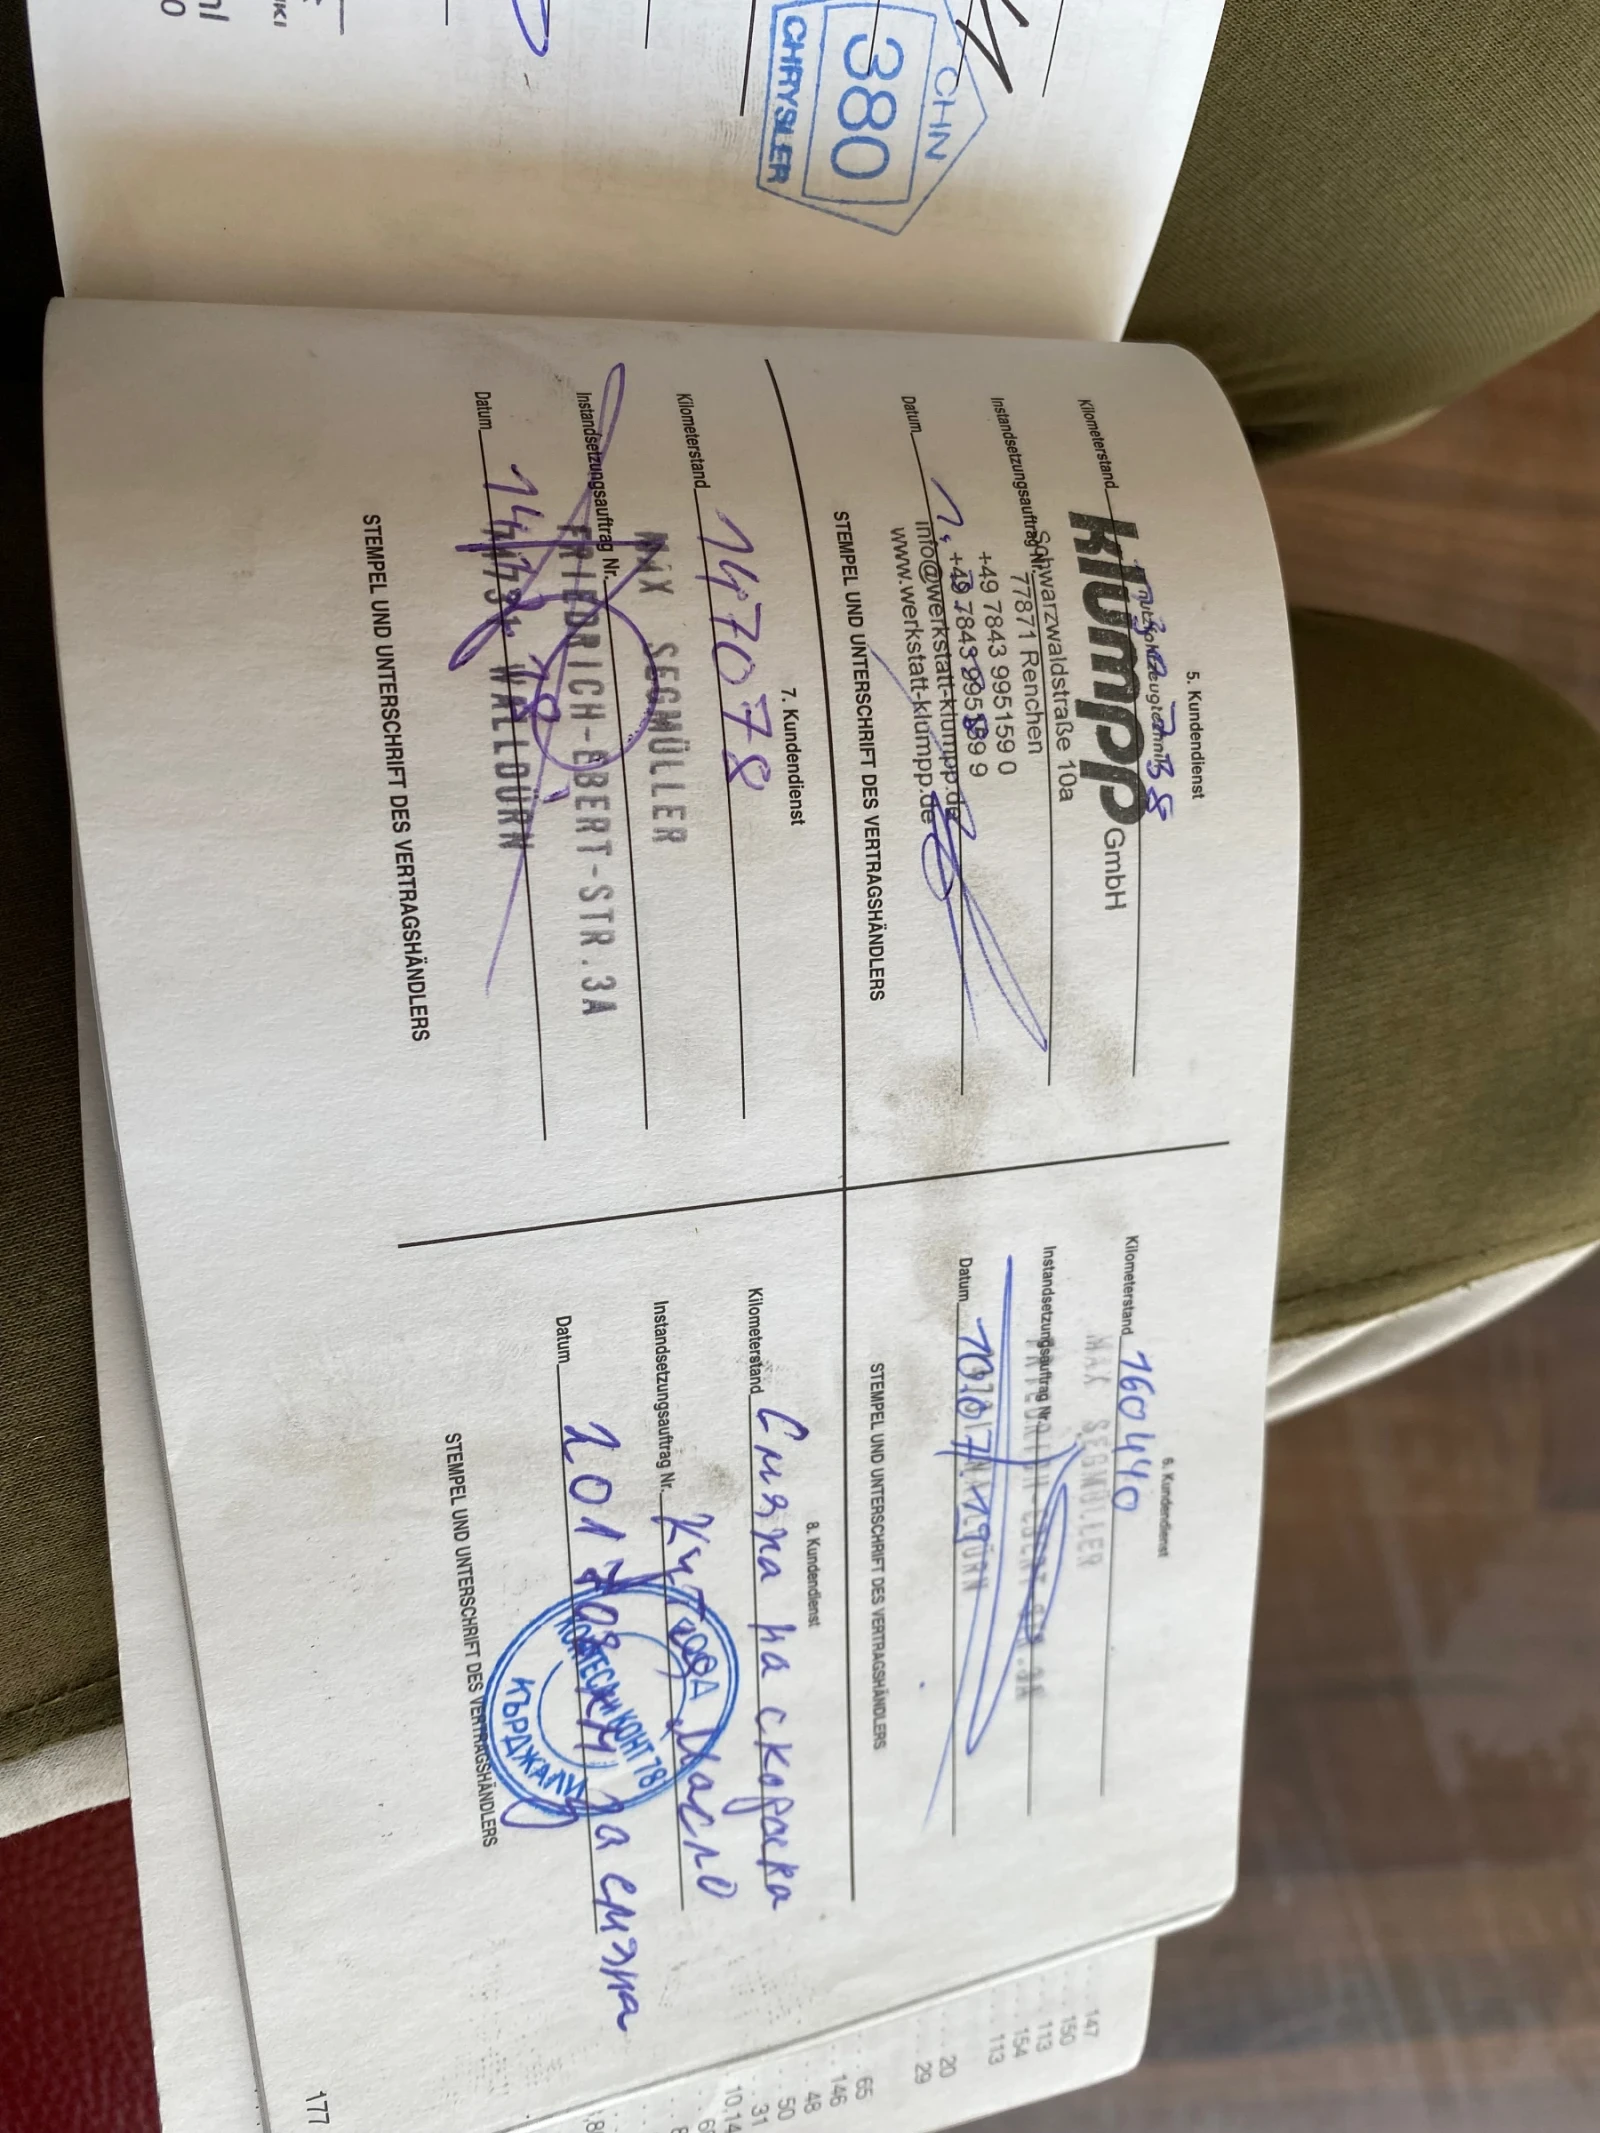 CHN
380
CHRYSLER
5. Kundendienst
Kilometerstand
klumpp GmbH
Schwarzwaldstraße 10a
Instandsetzungsauftrag Nr. 77871 Renchen
+49 7843 995159 0
+49 7843 995159 9
Datum
info@werkstatt-klumpp.de
www.werkstatt-klumpp.de
STEMPEL UND UNTERSCHRIFT DES VERTRAGSHÄNDLERS
6. Kundendienst
Kilometerstand 160440
MAX SEGMÜLLER
Instandsetzungsauftrag Nr.
Datum 10.07.19
STEMPEL UND UNTERSCHRIFT DES VERTRAGSHÄNDLERS
7. Kundendienst
Kilometerstand 147078
MAX SEGMÜLLER
Instandsetzungsauftrag Nr.
FRIEDRICH-EBERT-STR.3A
Datum
WALLDÜRN
STEMPEL UND UNTERSCHRIFT DES VERTRAGSHÄNDLERS
8. Kundendienst
Kilometerstand Смяна на скороска
Instandsetzungsauftrag Nr. Кутия Масло
Datum 201708 км за смяна
КОНТ 78
КЪРДЖАЛИ
STEMPEL UND UNTERSCHRIFT DES VERTRAGSHÄNDLERS
177
147
150
113
154
113
20
29
65
146
48
50
31
10,14